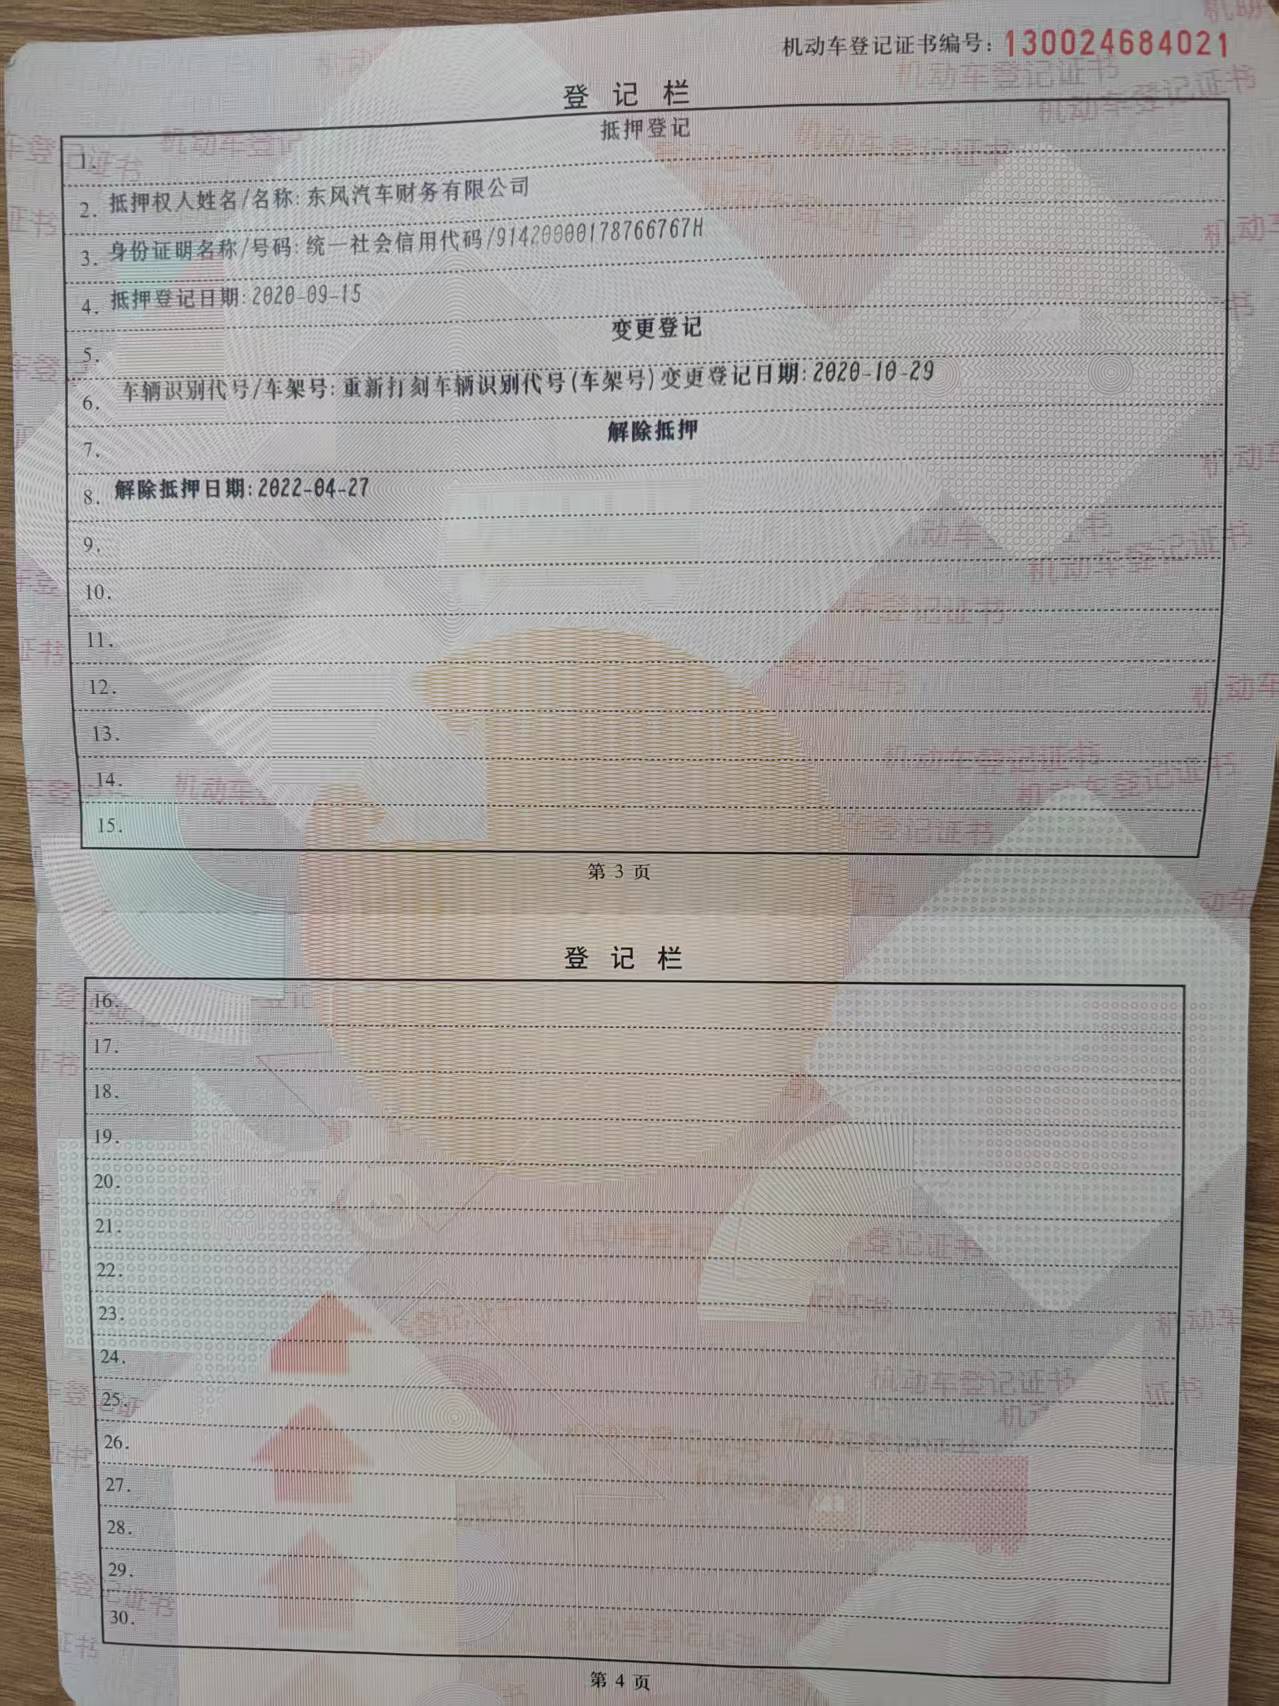 机动车登记证书编号：130024684021
登 记 栏
1. 抵押登记
2. 抵押权人姓名/名称:东风汽车财务有限公司
3. 身份证明名称/号码:统一社会信用代码/91420000178766767H
4. 抵押登记日期:2020-09-15
5. 变更登记
6. 车辆识别代号/车架号:重新打刻车辆识别代号(车架号)变更登记日期:2020-10-29
7. 解除抵押
8. 解除抵押日期:2022-04-27
9.
10.
11.
12.
13.
14.
15.
第 3 页
登 记 栏
16.
17.
18.
19.
20.
21.
22.
23.
24.
25.
26.
27.
28.
29.
30.
第 4 页